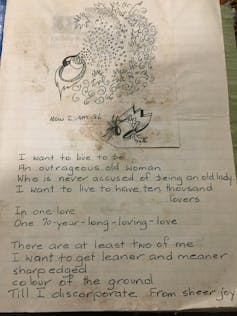 NOW I AM 62
I want to live to be
An outrageous old woman
Who is never accused of being an old lady.
I want to live to have ten thousand
lovers
In one love
One 70-year-long-loving-love
There are at least two of me
I want to get leaner and meaner
sharp edged
colour of the ground
Till I discorporate From sheer joy